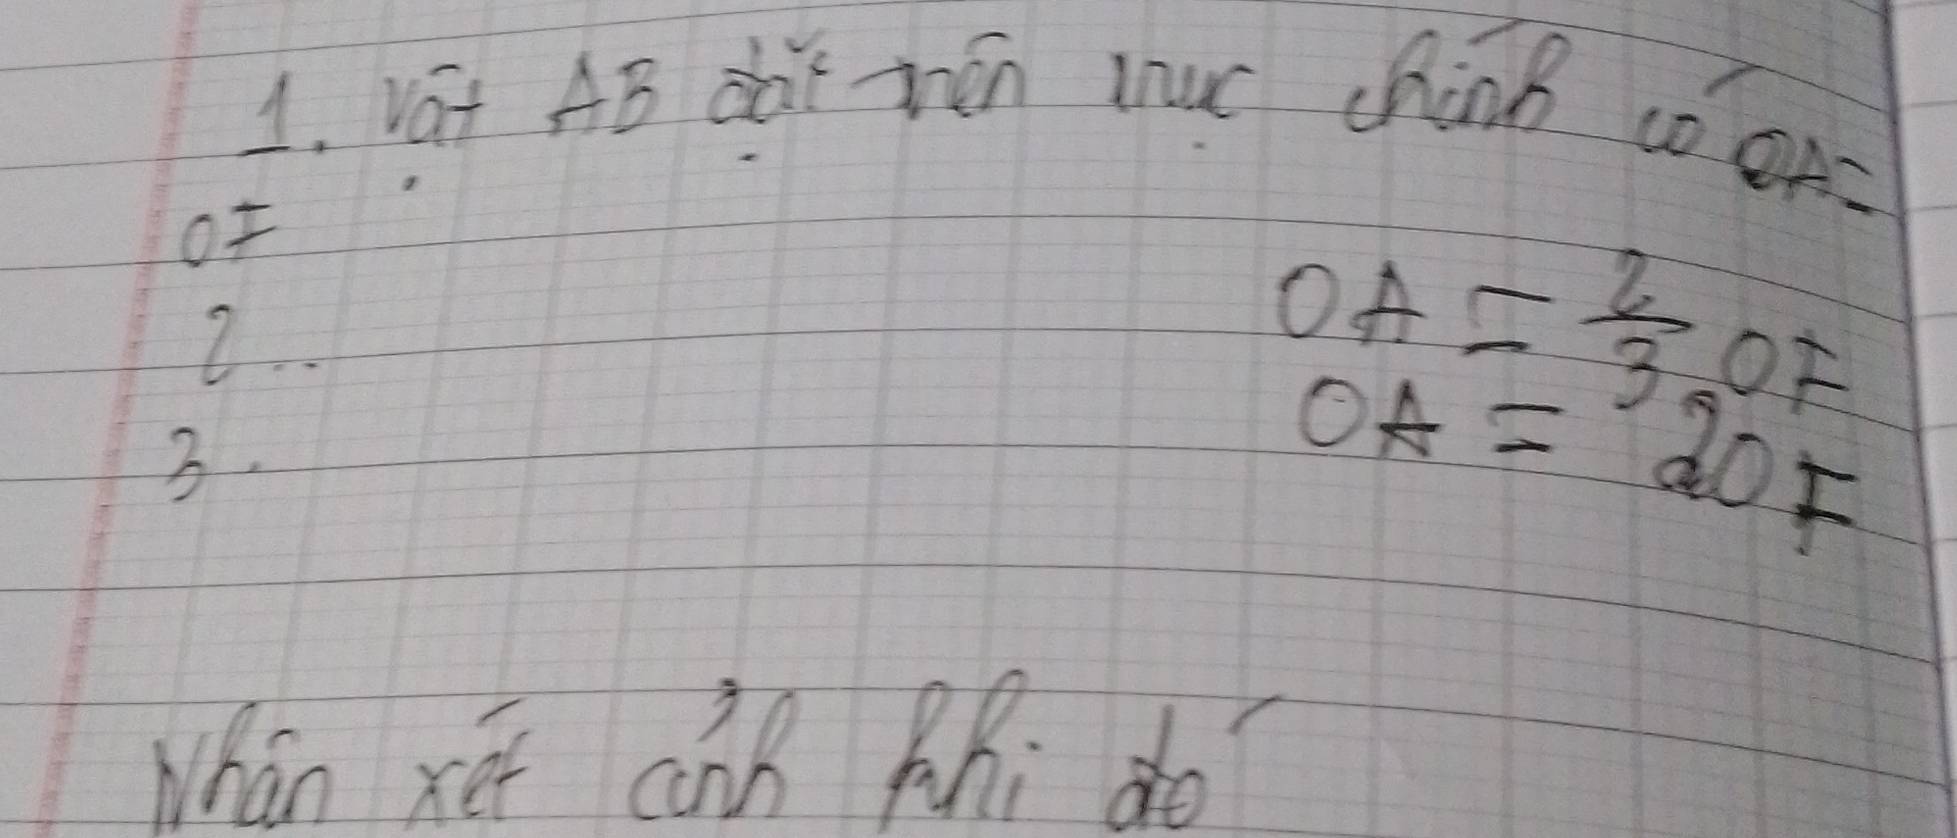 1. Vật AB đặt trên trục chính có OA =
OF
2.. OA = 2/3 OF
3. OA = 2OF
Nhận xét ảnh khi đó